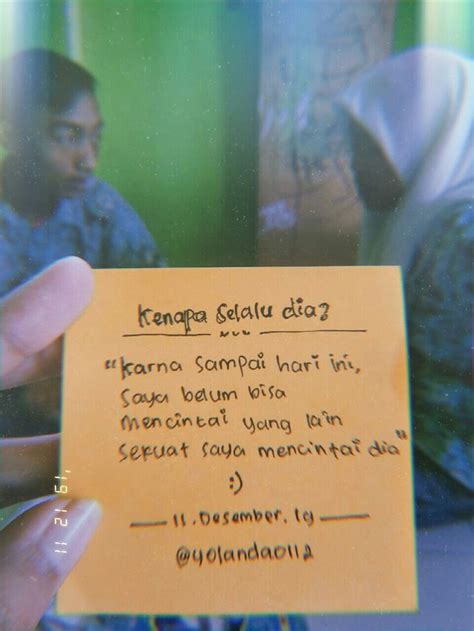 Kenapa selalu dia?
"Karna sampai hari ini,
saya belum bisa
mencintai yang lain
sekuat saya mencintai dia"
:)
11. Desember. 19
@yolanda0112
11 12 '19